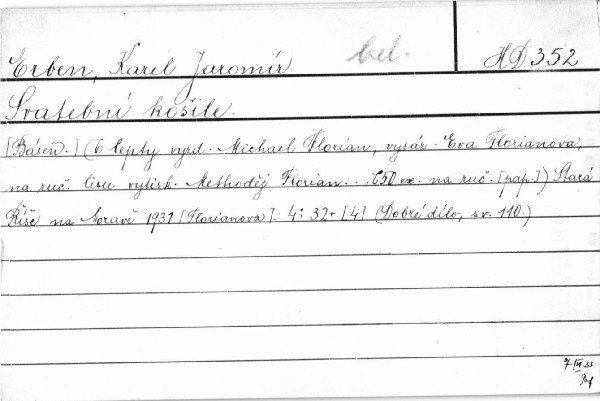 Erben, Karel Jaromír bel. HD 352
Svatební košile.
[Báseň.] (6 lepty vyzd. Michael Florian, vysáz. Eva Florianova,
na ruč. lisu vytisk. Methoděj Florian... 650 ex. na ruč. [pap.]) Stará
Říše na Moravě 1931 [Florianova]. 4: 32+[4] (Dobré dílo, sv. 110.)
7